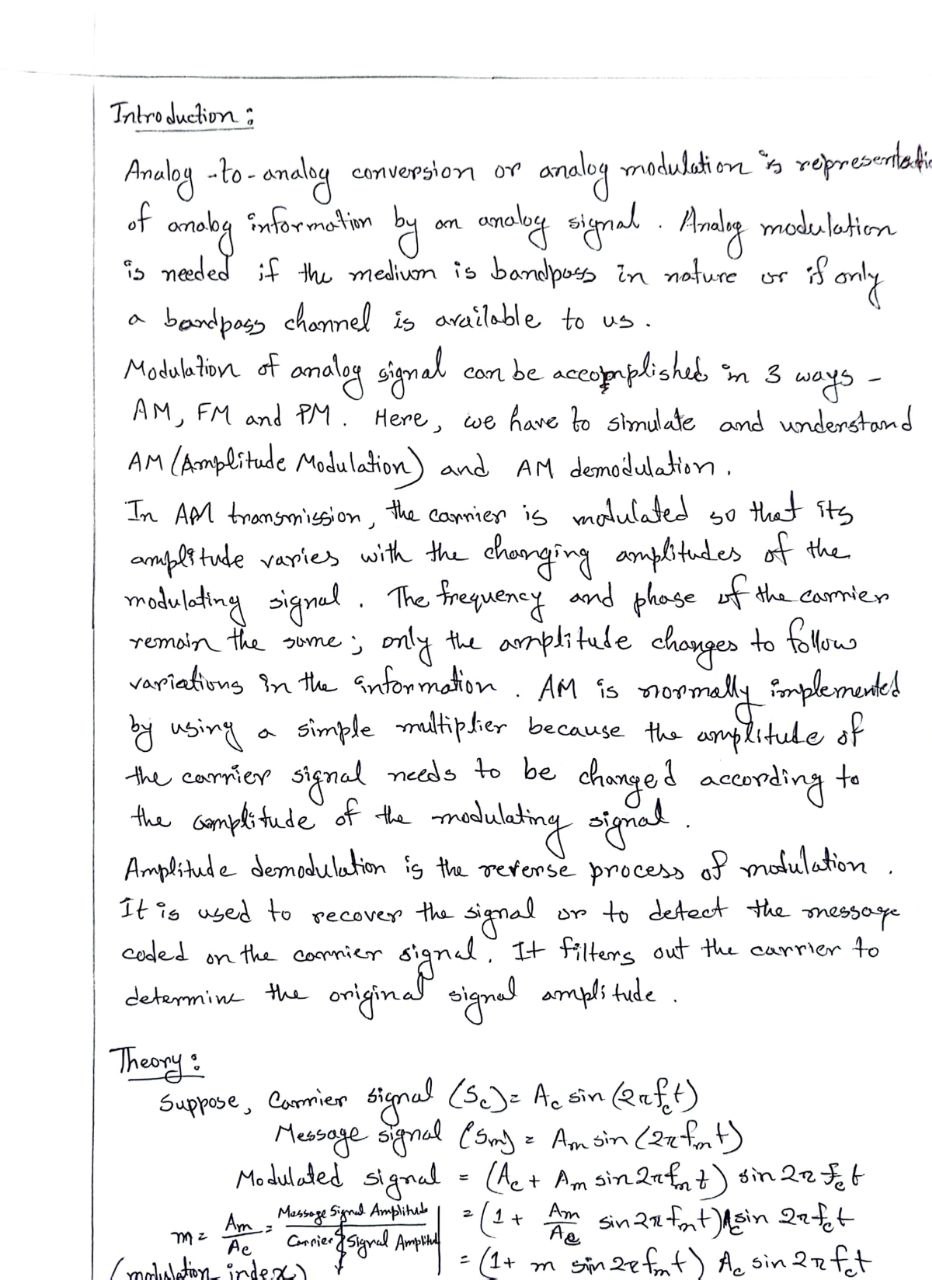 Introduction :
Analog-to-analog conversion or analog modulation is representatio
of analog information by an analog signal. Analog modulation
is needed if the medium is bandpass in nature or if only
a bandpass channel is available to us.
Modulation of analog signal can be accomplished in 3 ways -
AM, FM and PM. Here, we have to simulate and understand
AM (Amplitude Modulation) and AM demodulation.
In AM transmission, the carrier is modulated so that its
amplitude varies with the changing amplitudes of the
modulating signal. The frequency and phase of the carrier
remain the same; only the amplitude changes to follow
variations in the information. AM is normally implemented
by using a simple multiplier because the amplitude of
the carrier signal needs to be changed according to
the amplitude of the modulating signal.
Amplitude demodulation is the reverse process of modulation.
It is used to recover the signal or to detect the message
coded on the carrier signal. It filters out the carrier to
determine the original signal amplitude.
Theory :
Suppose, Carrier signal (Sc) = Ac sin (2πfct)
Message signal (Sm) = Am sin (2πfmt)
Modulated signal = (Ac + Am sin 2πfmt) sin 2πfct
m = Am/Ac = Message Signal Amplitude / Carrier Signal Amplitud = (1 + Am/Ac sin 2πfmt) Ac sin 2πfct
(modulation index) = (1 + m sin 2πfmt) Ac sin 2πfct